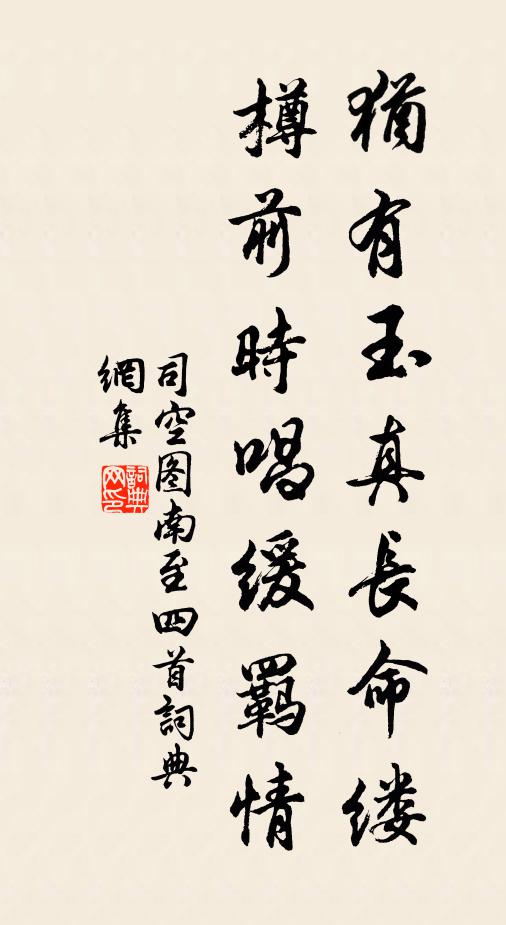 猶有玉真長命缕
樽前時唱緩羈情
司空图南至四首詞典
網集
詞典网印